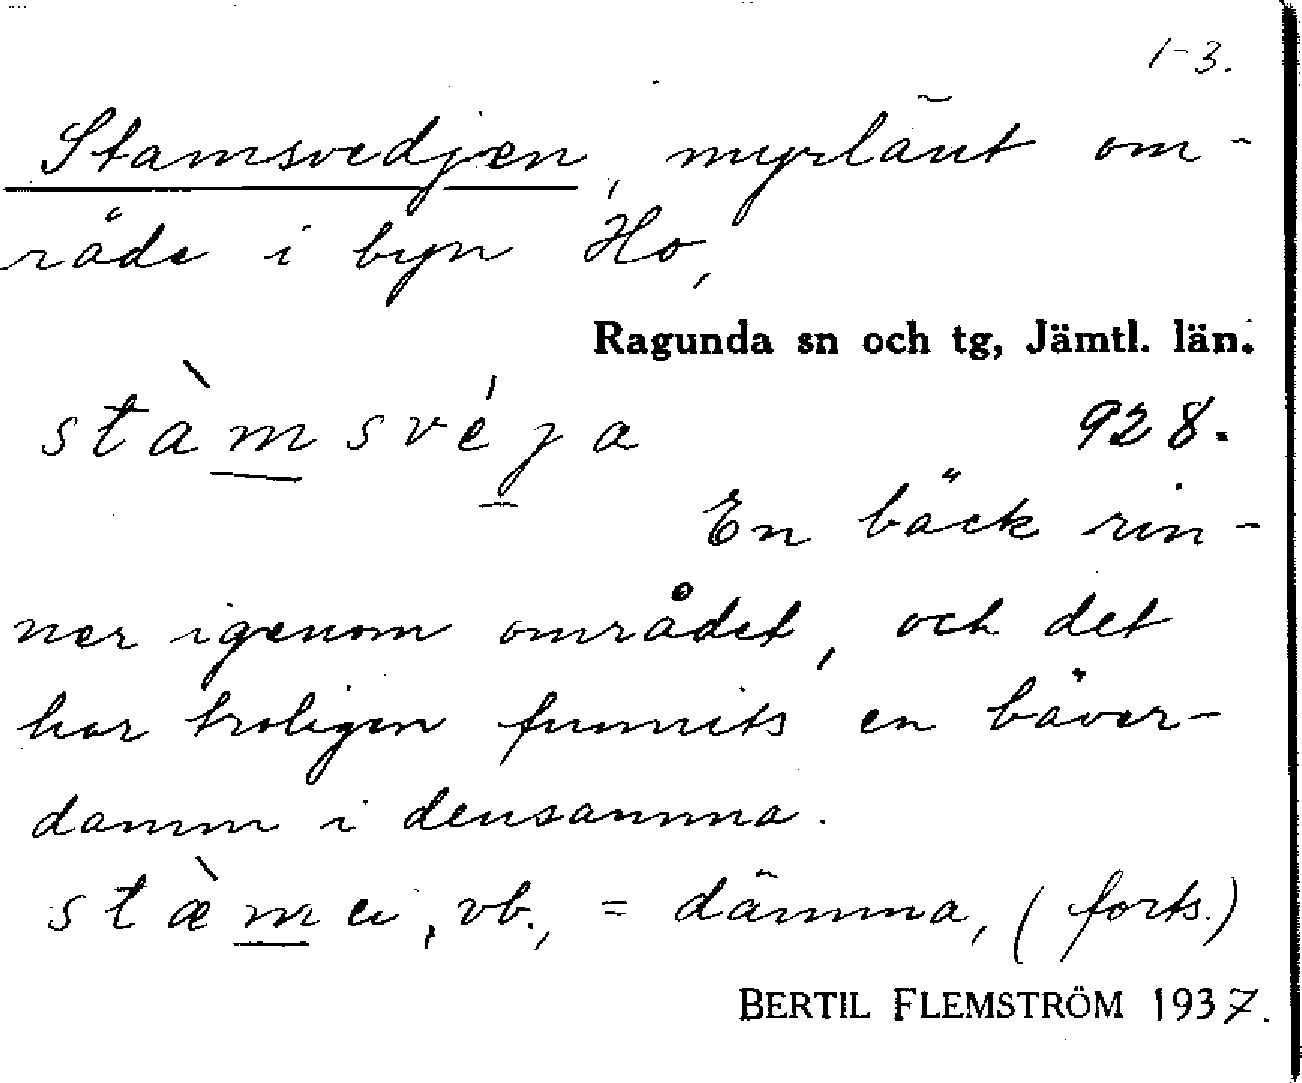 1-3.
Stamsvedjen, myrlänt om-
råde i byn Ho,
Ragunda sn och tg, Jämtl. län.
stàmsvéja 928.
En bäck rin-
ner igenom området, och det
har troligen funnits en bäver-
damm i densamma.
stæ̀ma, vb., = dämma, (forts.)
BERTIL FLEMSTRÖM 1937.